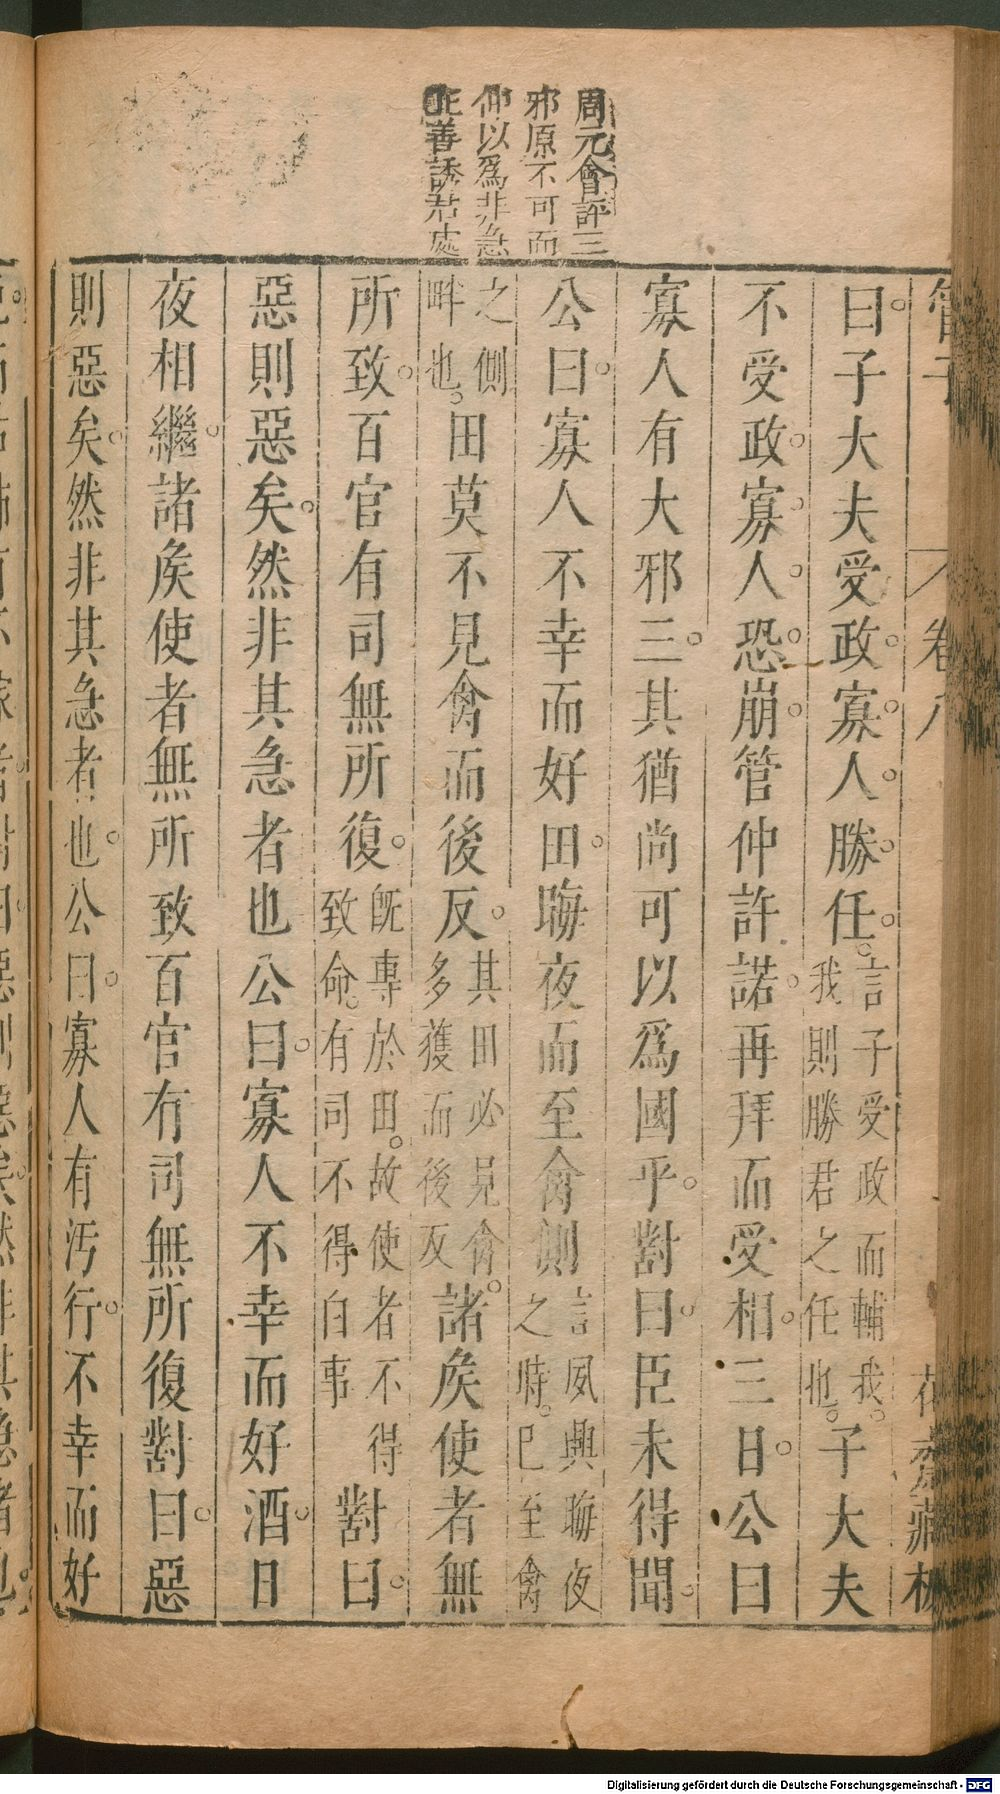 周元會評三
邪原不可而
仲以爲非急
正善誘君處
管子
卷八
花齋藏板
曰子大夫受政寡人勝任言子受政而輔我我則勝君之任也子大夫
不受政寡人恐崩管仲許諾再拜而受相三日公曰
寡人有大邪三其猶尚可以爲國乎對曰臣未得聞
公曰寡人不幸而好田晦夜而至禽側言夙興晦夜之時巳至禽
之側畔也田莫不見禽而後反其田必見禽多獲而後反諸矦使者無
所致百官有司無所復旣專於田故使者不得致命有司不得白事對曰
惡則惡矣然非其急者也公曰寡人不幸而好酒日
夜相繼諸矦使者無所致百官有司無所復對曰惡
則惡矣然非其急者也公曰寡人有汚行不幸而好
Digitalisierung gefördert durch die Deutsche Forschungsgemeinschaft - DFG